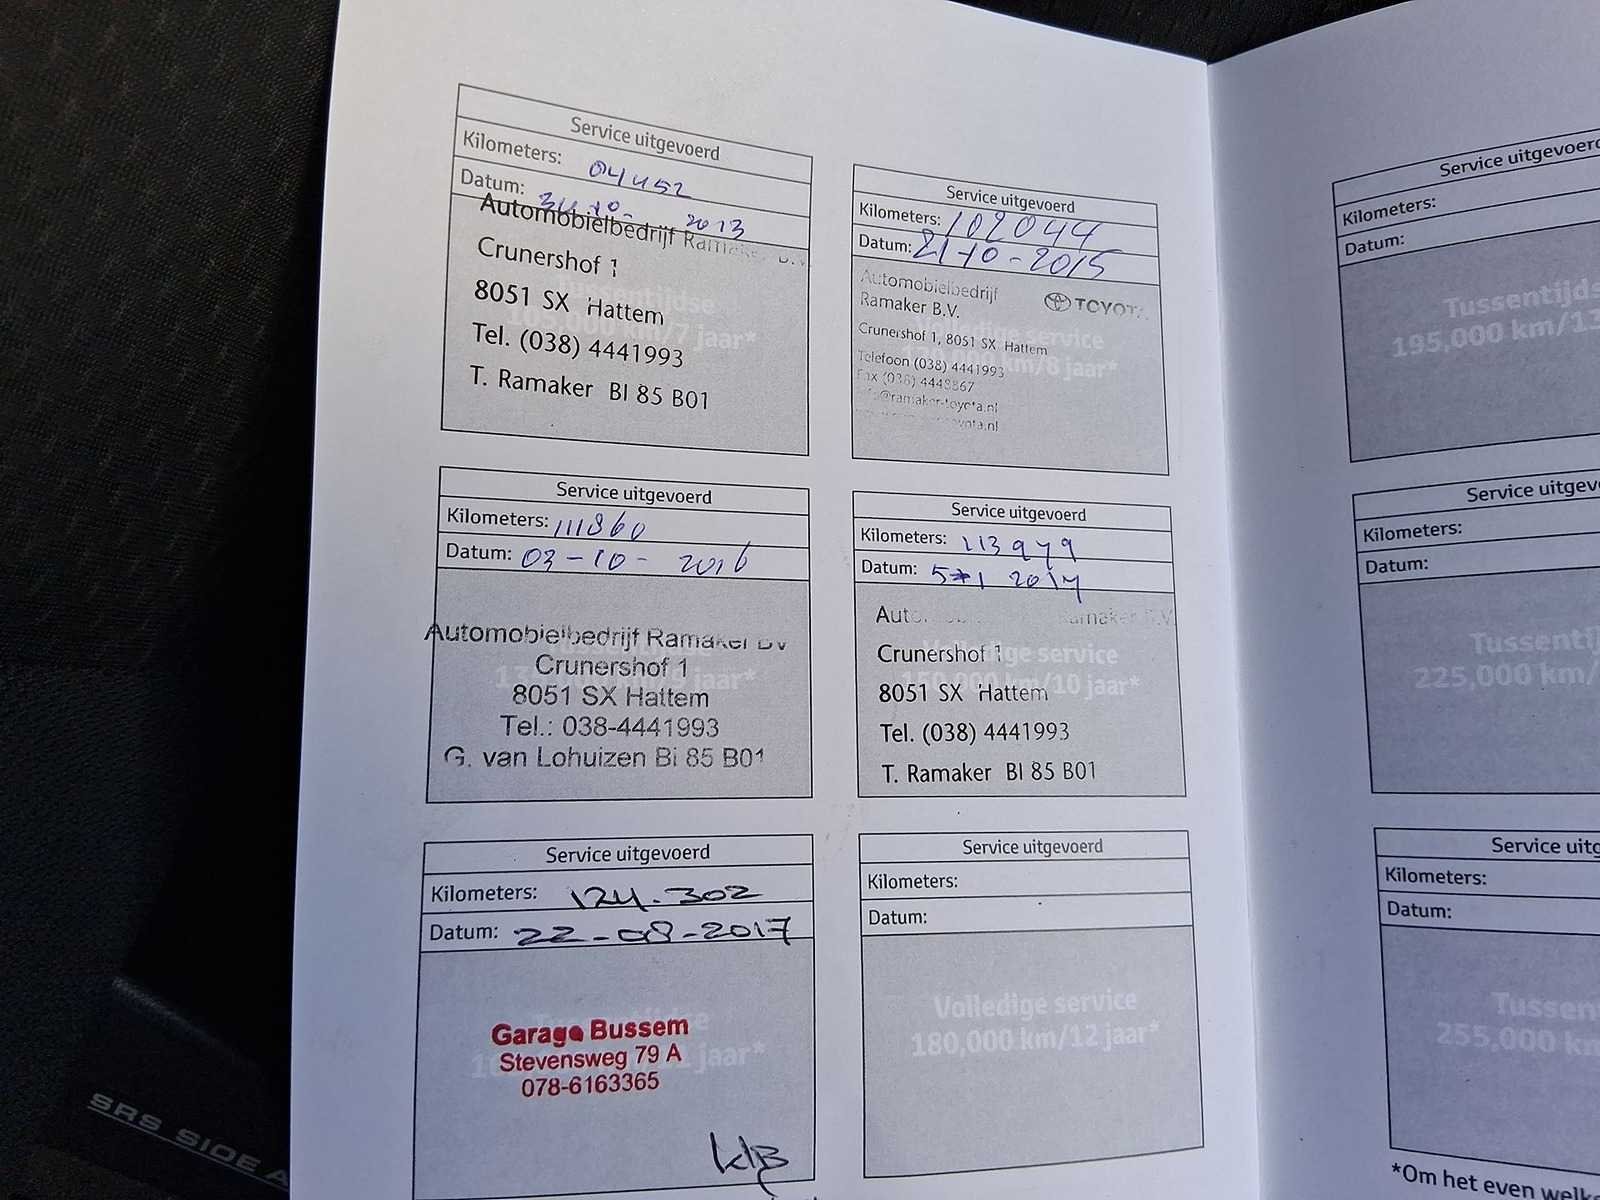 Service uitgevoerd
Kilometers:
Datum: 2013
Automobielbedrijf Ramaker B.V.
Crunershof 1
8051 SX Hattem
Tel. (038) 4441993
T. Ramaker BI 85 B01
Tussentijdse
105,000 km/7 jaar*
Service uitgevoerd
Kilometers: 102044
Datum: 21-10-2015
Automobielbedrijf
Ramaker B.V.
TOYOTA
Crunershof 1, 8051 SX Hattem
Telefoon (038) 4441993
Fax (038) 4448867
info@ramaker-toyota.nl
Volledige service
km/8 jaar*
Service uitgevoerd
Kilometers: 111860
Datum: 03-10-2016
Automobielbedrijf Ramaker BV
Crunershof 1
8051 SX Hattem
Tel.: 038-4441993
G. van Lohuizen Bi 85 B01
jaar*
Service uitgevoerd
Kilometers: 113979
Datum: 5-1 2017
Automobielbedrijf Ramaker B.V.
Crunershof 1
8051 SX Hattem
Tel. (038) 4441993
T. Ramaker BI 85 B01
Volledige service
150,000 km/10 jaar*
Service uitgevoerd
Kilometers: 124.302
Datum: 22-08-2017
Garage Bussem
Stevensweg 79 A
078-6163365
jaar*
Service uitgevoerd
Kilometers:
Datum:
Volledige service
180,000 km/12 jaar*
Service uitgevoerd
Kilometers:
Datum:
Tussentijds
195,000 km/13
Service uitgev
Kilometers:
Datum:
Tussentij
225,000 km/
Service uitg
Kilometers:
Datum:
Tussen
255,000 km
*Om het even welk
SRS SIDE A